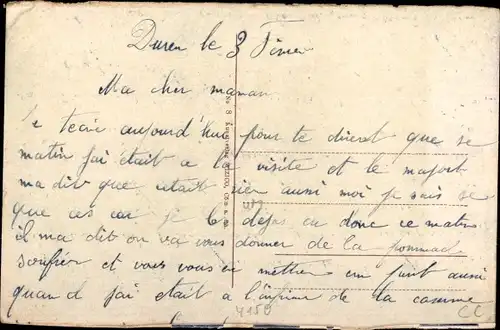 Duren le 3 Fevrier
Ma cher maman
Je tecrie aujourd'hui pour te direct que se
matin jai était a la visite et le majort
ma dit que etait rien aussi moi je sais se
que ces car je l déjas eu donc ce matin
il ma dit on va vous donner de la pommad
soufrier et vous vous en mettrer un peut aussi
quand jai était a l'infirme de la caserne
4150